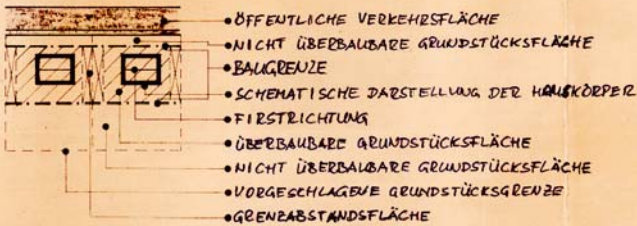 ÖFFENTLICHE VERKEHRSFLÄCHE
NICHT ÜBERBAUBARE GRUNDSTÜCKSFLÄCHE
BAUGRENZE
SCHEMATISCHE DARSTELLUNG DER HAUSKÖRPER
FIRSTRICHTUNG
ÜBERBAUBARE GRUNDSTÜCKSFLÄCHE
NICHT ÜBERBAUBARE GRUNDSTÜCKSFLÄCHE
VORGESCHLAGENE GRUNDSTÜCKSGRENZE
GRENZABSTANDSFLÄCHE